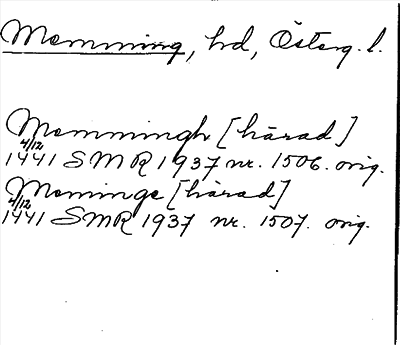 Memming, hd, Österg. l.
Memmingh [härad]
4/12
1441 SMR 1937 nr. 1506. orig.
Meminge [härad]
4/12
1441 SMR 1937 nr. 1507. orig.